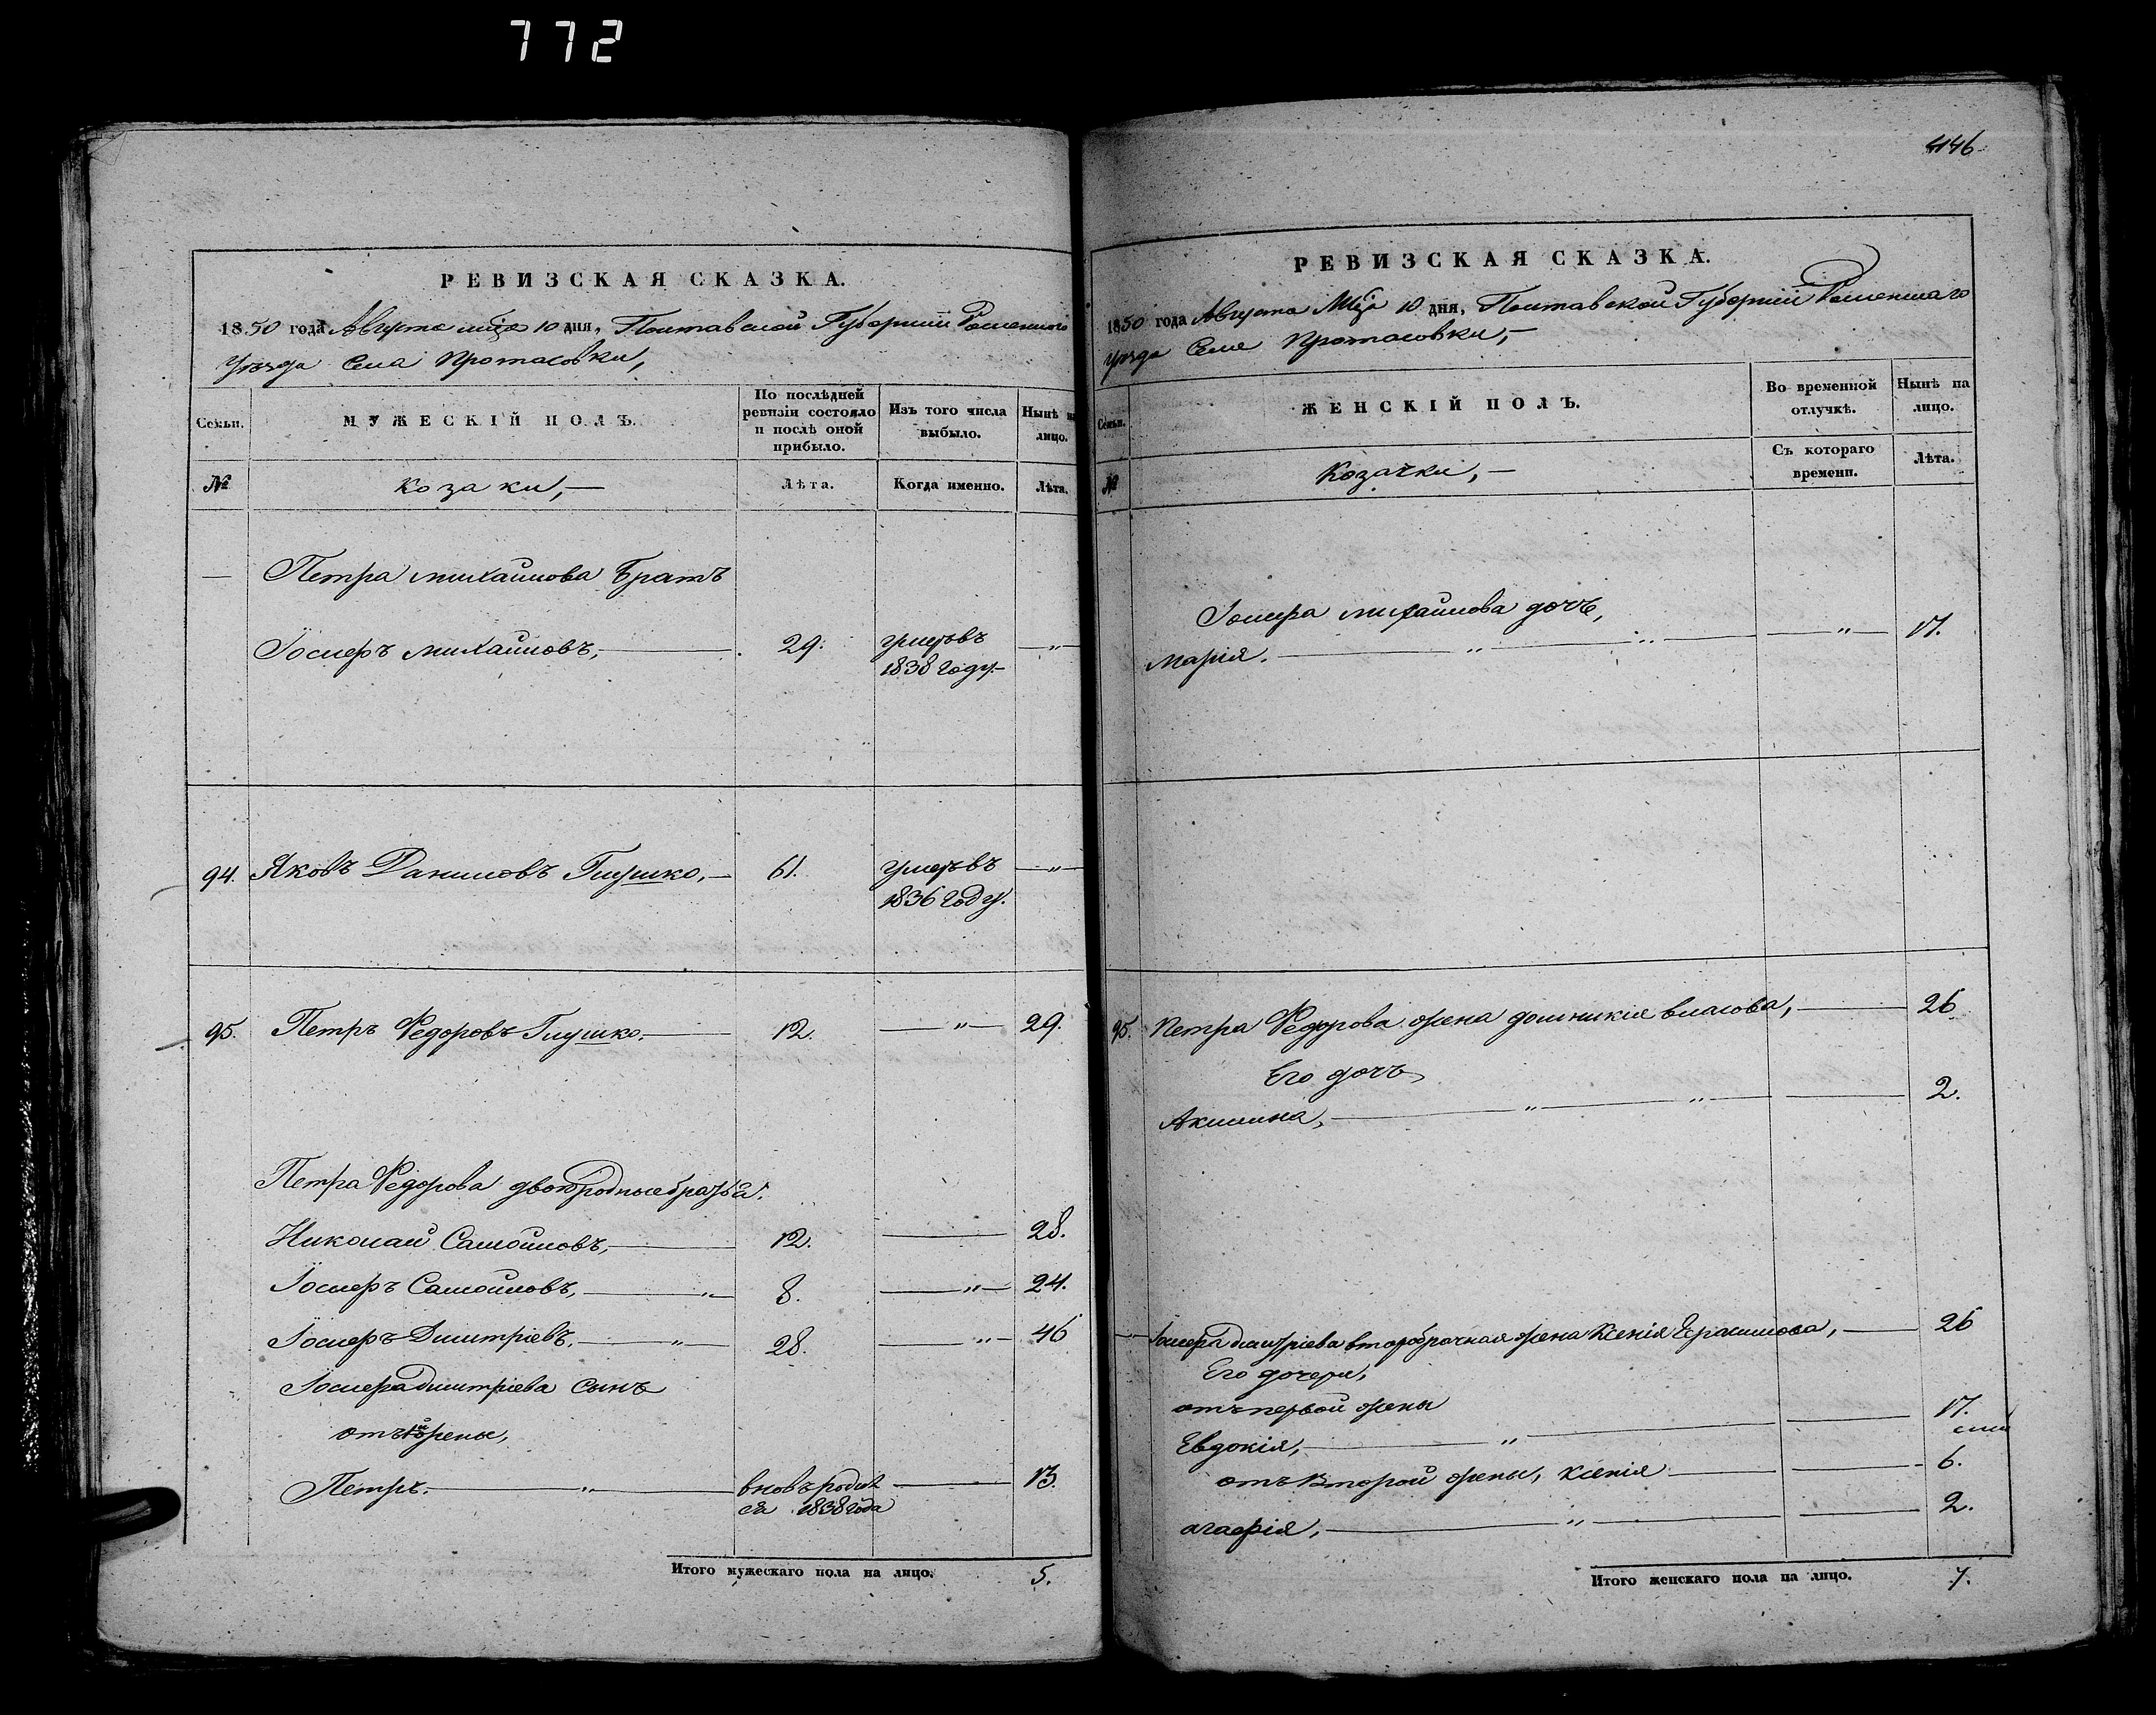 772
РЕВИЗСКАЯ СКАЗКА.
1850 года Августа мца 10 дня, Полтавской Губерніи Роменнаго
Уезда Села Протасовки,
Семьи.
МУЖЕСКІЙ ПОЛЪ.
По послѣдней ревизіи состояло и послѣ оной прибыло.
Изъ того числа выбыло.
Нынѣ на лицо.
№
Козаки,
Лѣта.
Когда именно.
Лѣта.
— Петра михайлова Братъ
Іосифъ михайловъ, 29. умеръ въ — " —
1838 году.
94. Яковъ Даниловъ Глушко, 61. умеръ въ — " —
1836 году.
95. Петръ Федоровъ Глушко. 12. — " — 29.
Петра Федорова двоюродные братья.
Николай Самойловъ, 12. 28.
Іосифъ Самойловъ, " 8. " 24.
Іосифъ Дмитріевъ. " 28. " 46
Іосифа Дмитріева сынъ
отъ 1й жены,
Петръ. " вновь родил 13.
ся 1838 года
Итого мужескаго пола на лицо. 5.
4146
РЕВИЗСКАЯ СКАЗКА.
1850 года Августа Мца 10 дня, Полтавской Губерніи Роменнаго
Уезда Селе Протасовки,
Семьи.
ЖЕНСКІЙ ПОЛЪ.
Во временной отлучкѣ.
Нынѣ на лицо.
№
Козачки,
Съ котораго времени.
Лѣта.
Іосифа михайлова дочь,
Марія. " " " 17.
95. Петра Федорова жена домникія власова, 26
Его дочь
Акилина, " " 2.
Іосифа Дмитріева второбрачная жена Ксенія Герасимова, 26
Его дочери,
отъ первой жены
Евдокія, " 17.
отъ второй жены, Ксенія 6.
агафія, " 2.
Итого женскаго пола на лицо. 7.